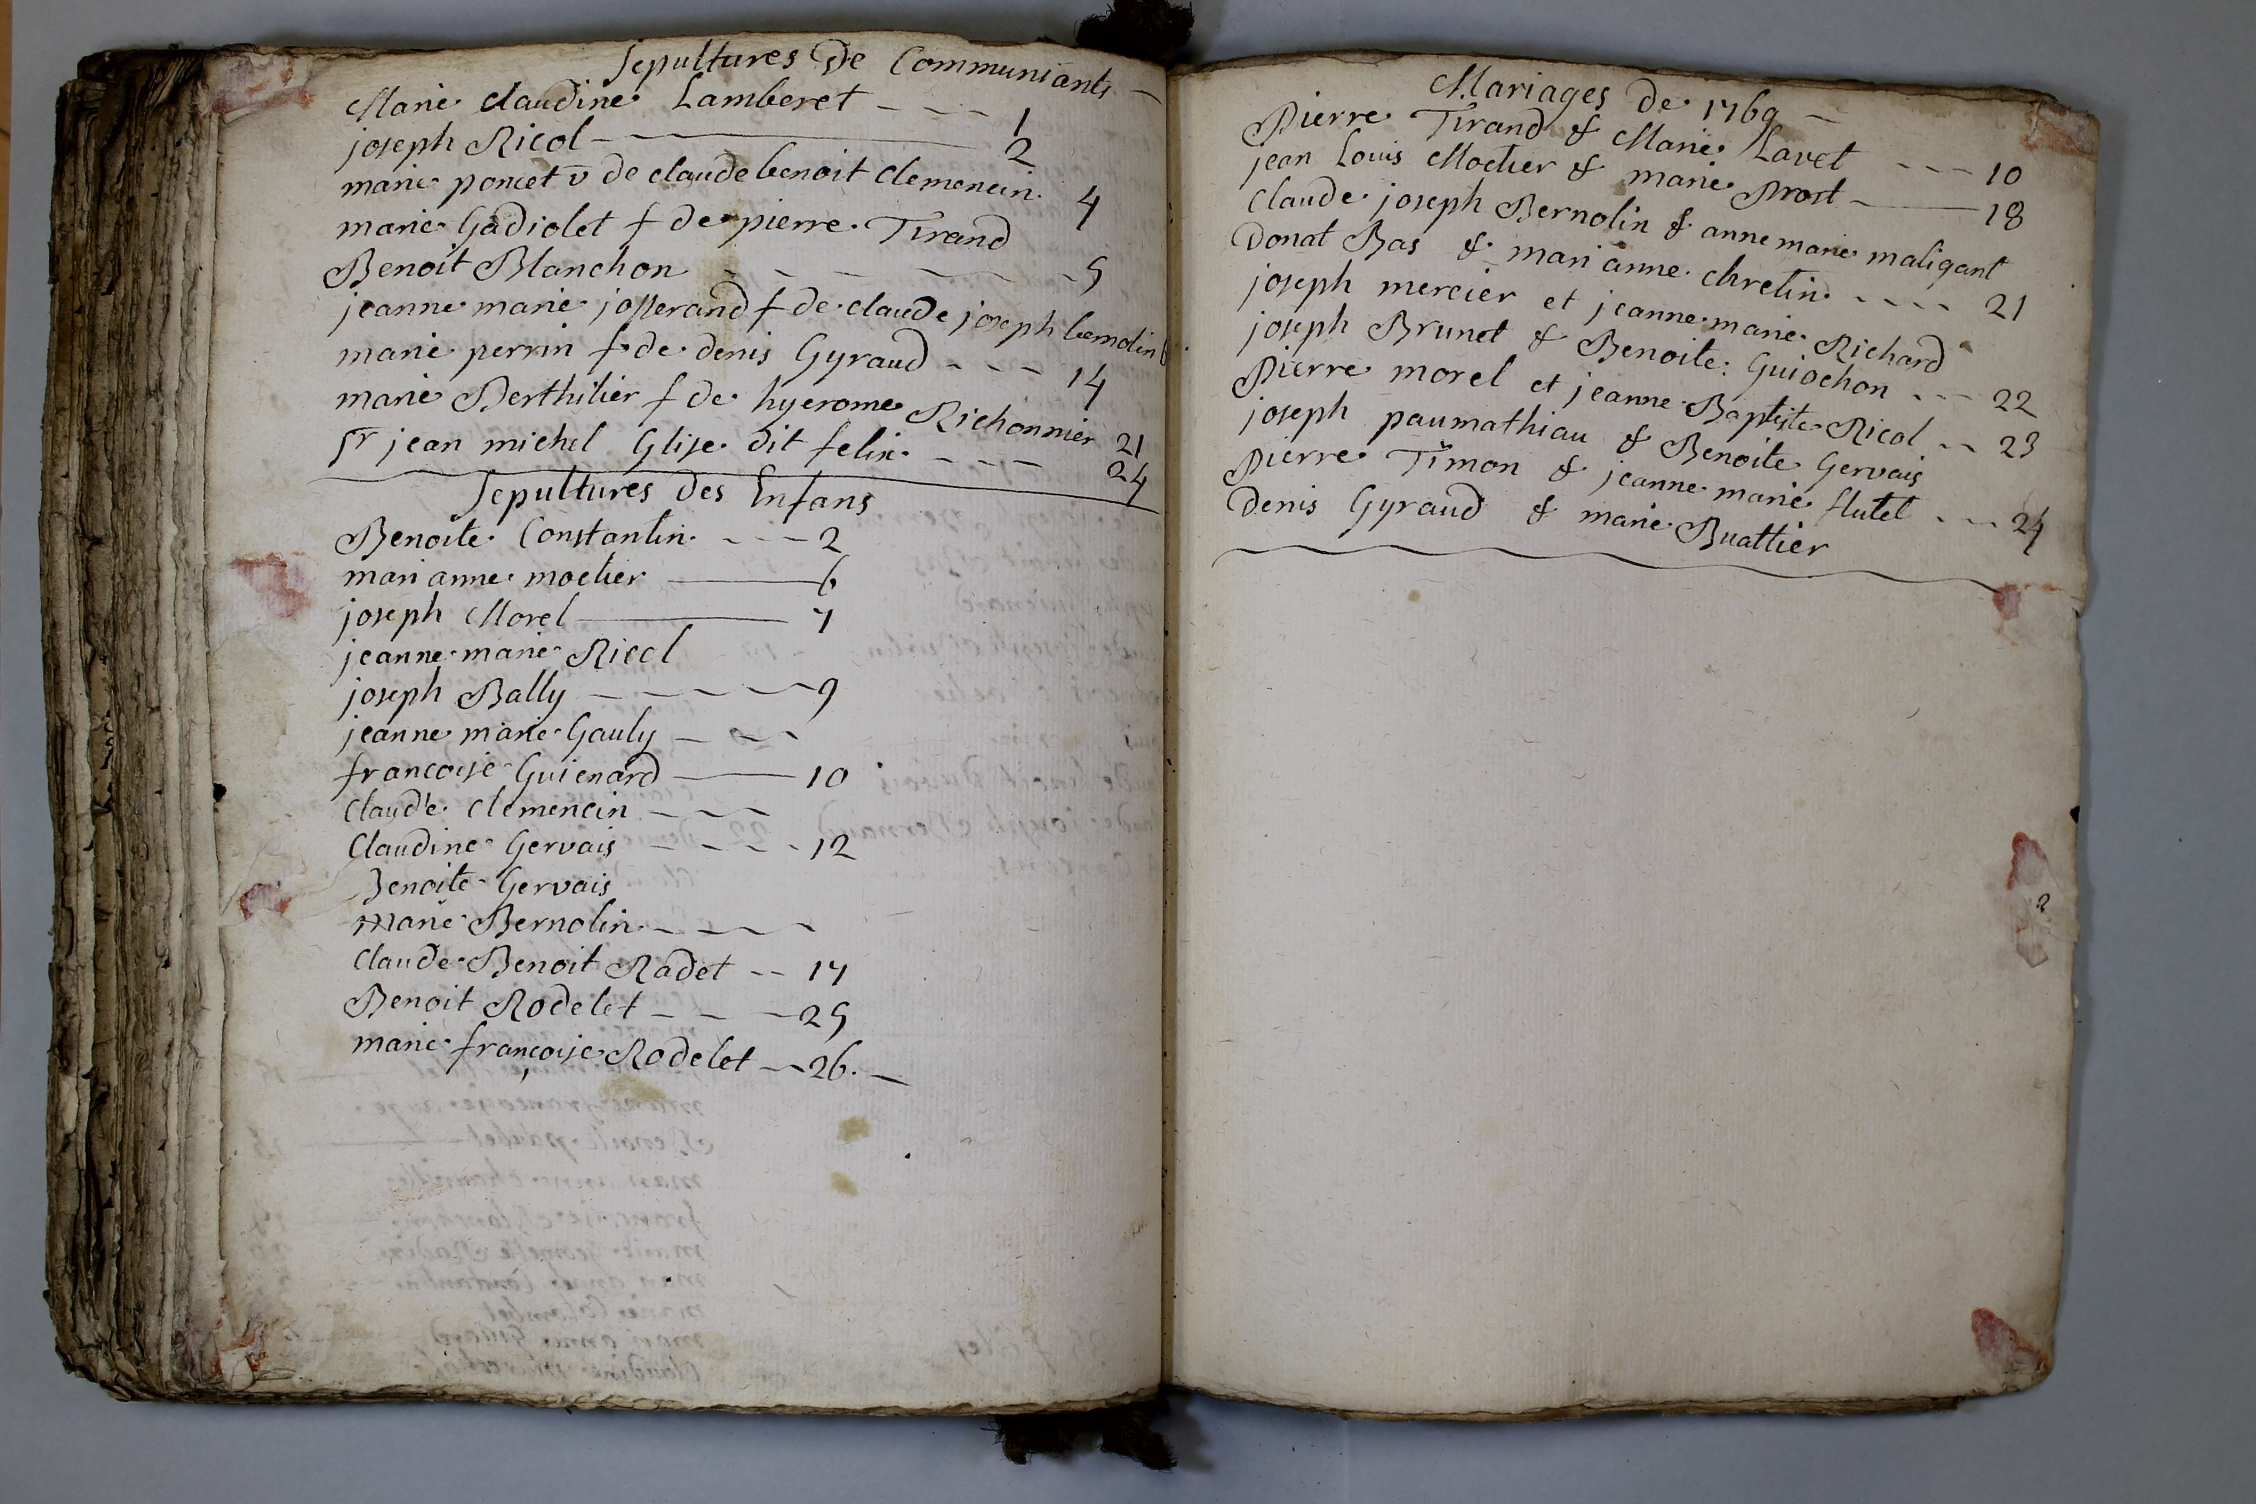 Sepultures De Communiants
Marie claudine Lamberet - - - 1
joseph Nicol - 2
marie poncet v de claude benoit clemencin. 4
marie Gadiolet f de pierre Tirand
Benoit Blanchon - - - - - 5
jeanne marie josserand f de claude joseph bernolin 6
marie perrin f de denis Gyraud - - - 14
marie Berthilier f de hyerome Richonnier 21
Sr jean michel Glise dit felix - - - 24
Sepultures des Enfans
Benoite Constantin - - - 2
mari anne moctier - 6
joseph Morel - 7
jeanne marie Nicol
joseph Bally - - - - 9
jeanne marie Gauly - - -
francoise Guienard - 10
claude clemencin - - -
Claudine Gervais - - - - 12
Benoite Gervais
Marie Bernolin - - - -
claude Benoit Radet - - 17
Benoit Rodelet - - - 25
marie françoise Rodelet - - 26. -
Mariages de 1769 -
Pierre Tirand & Marie Lavet - - - 10
jean Louis Moctier & marie Prost - 18
Claude joseph Bernolin & anne marie maligant
Donat Bas & mari anne chretin - - - - 21
joseph mercier et jeanne marie Richard
joseph Brunet & Benoite Guiochon - - - 22
Pierre morel et jeanne Baptiste Nicol - - 23
joseph paumathiau & Benoite Gervais
Pierre Timon & jeanne marie flutet - - - 24
Denis Gyraud & marie Buattier